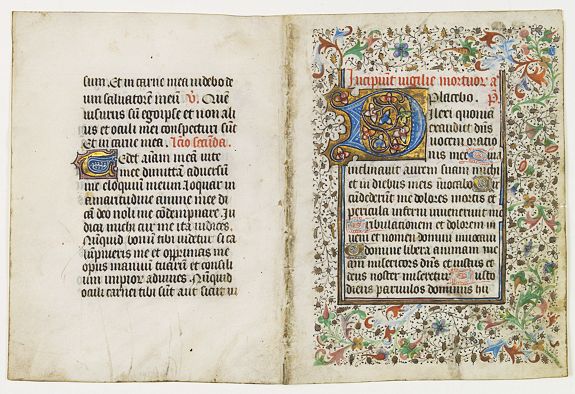 sum. Et in carne mea videbo de
um salvatorē meū V. Quē
visurus sū ego ipse et non ali
us et oculi mei conspecturi sūt
Et in carne mea. Lc̄o secūda.
Tedet aīam meā vite
mee dimittā adversū
me eloquiū meum loquar in
amaritudine anime mee di
cā deo noli me cōdempnare. In
dica michi cur me ita iudices.
Nūquid bonū tibi videtur si ca
lūpnieris me et opprimas me
opus manuū tuarū et consili
um impior adiuves. Nūquid
oculi carnei tibi sūt aut sicut vi
Incipiūt vigilie mortuor a
Placebo. p̄s
Dilexi quoniā
exaudiet dn̄s
vocem oratio
nis mee Quia
inclinavit aurem suam michi
et in diebus meis īvocabo
cūdederūt me dolores mortis et
pericula inferni invenerunt me
Tribulationem et dolorem in
veni et nomen domini invocavi
O domine libera animam me
am misericors dn̄s et iustus et
deus noster miseretur Custo
diens parvulos dominus hu